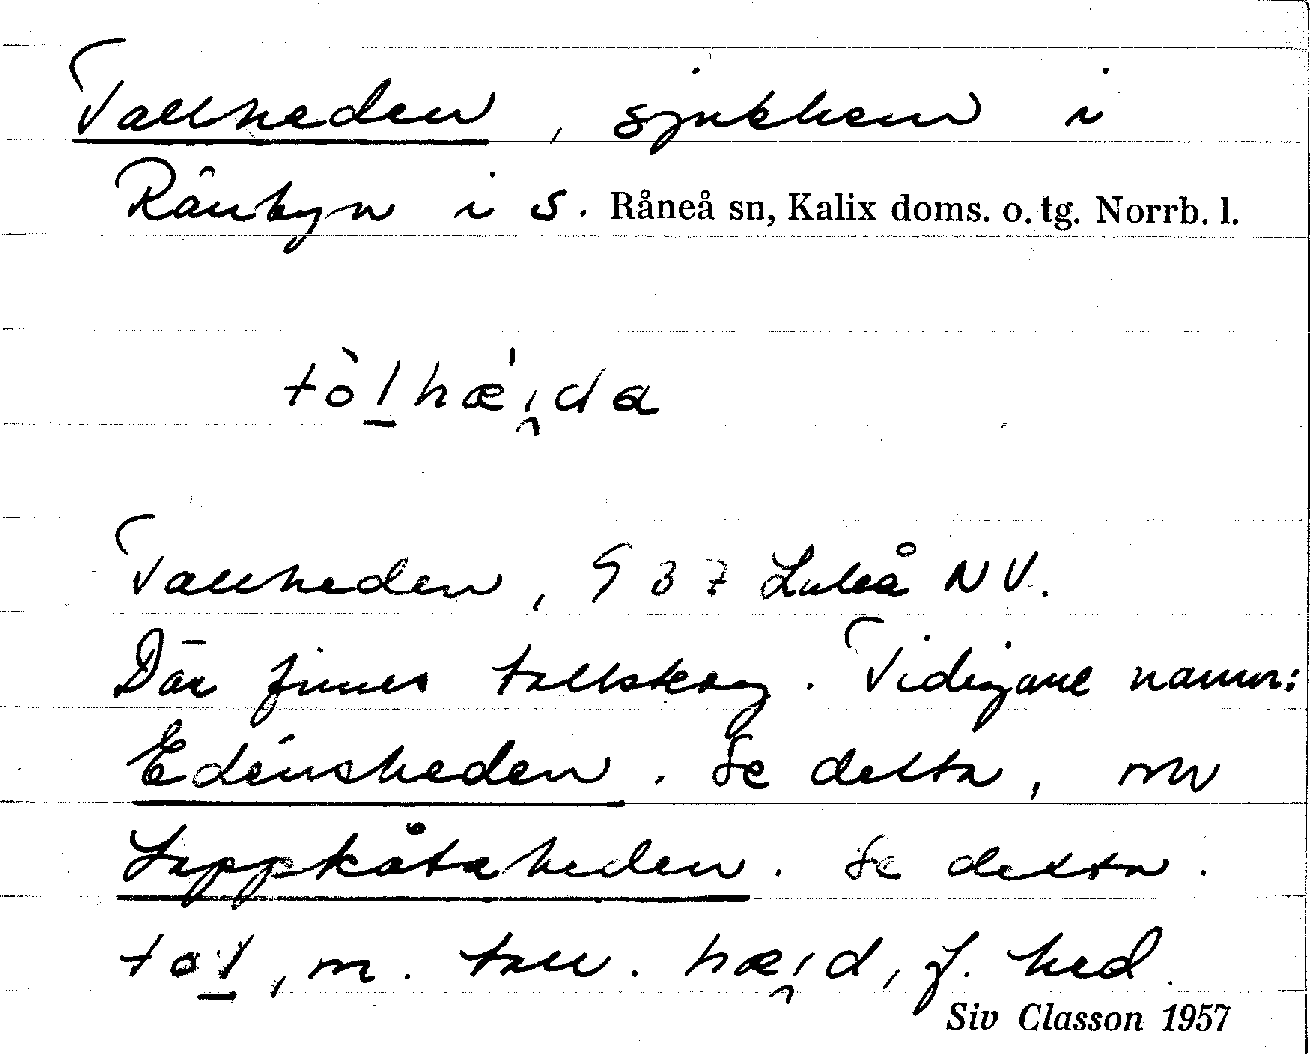 Tallheden, sjukhem i
Rånbyn i s. Råneå sn, Kalix doms. o. tg. Norrb. l.
tòl̠hæ̍i̯da
Tallheden, 9 3 7 Luleå NV.
Där finnes tallskog. Tidigare namn:
Edénsheden. Se detta, och
Lappkåtaheden. Se detta.
tol̠, m. tall. hæi̯d, f. hed.
Siv Classon 1957